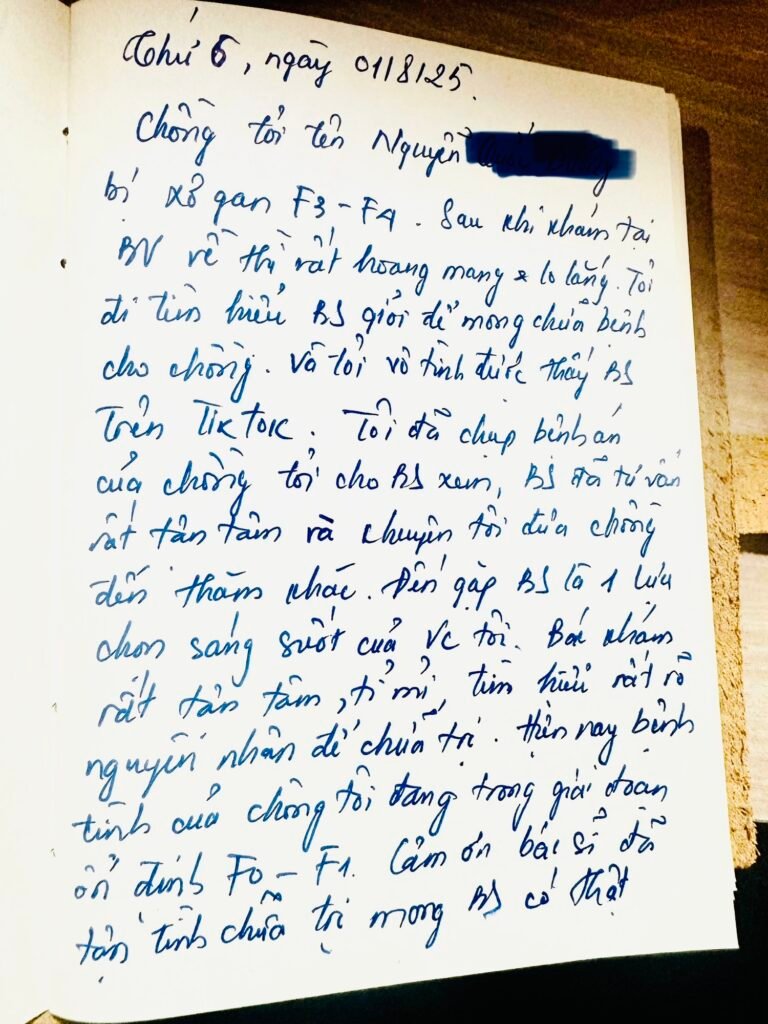 Thứ 6, ngày 01/8/25.
Chồng tôi tên Nguyễn
bị xơ gan F3-F4. Sau khi khám tại
BV về thì rất hoang mang & lo lắng. Tôi
đi tìm hiểu BS giỏi để mong chữa bệnh
cho chồng. Và tôi vô tình được thấy BS
trên TikTok. Tôi đã chụp bệnh án
của chồng tôi cho BS xem, BS đã tư vấn
rất tận tâm và khuyên tôi đưa chồng
đến thăm khác. Đến gặp BS là 1 lựa
chọn sáng suốt của VC tôi. Bác khám
rất tận tâm, tỉ mỉ, tìm hiểu rất rõ
nguyên nhân để chữa trị. Hiện nay bệnh
tình của chồng tôi đang trong giai đoạn
ổn định F0-F1. Cảm ơn bác sĩ đã
tận tình chữa trị mong BS có thật